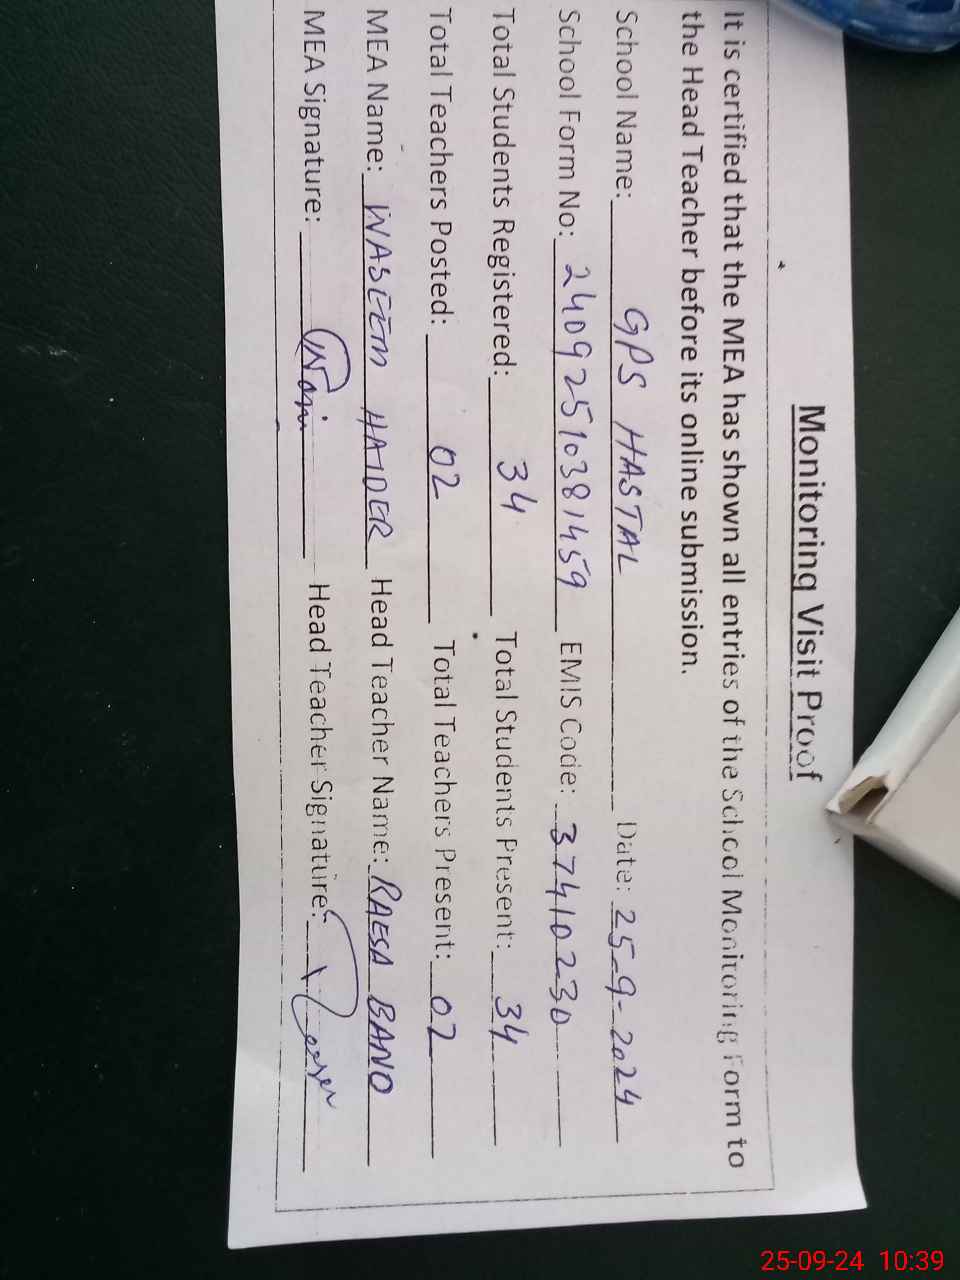 Monitoring Visit Proof
It is certified that the MEA has shown all entries of the School Monitoring Form to
the Head Teacher before its online submission.
School Name: GPS HASTAL Date: 25-9-2024
School Form No: 24092510381459 EMIS Code: 37410230
Total Students Registered: 34 Total Students Present: 34
Total Teachers Posted: 02 Total Teachers Present: 02
MEA Name: WASEEM HAIDER Head Teacher Name: RAESA BANO
MEA Signature: Head Teacher Signature:
25-09-24 10:39